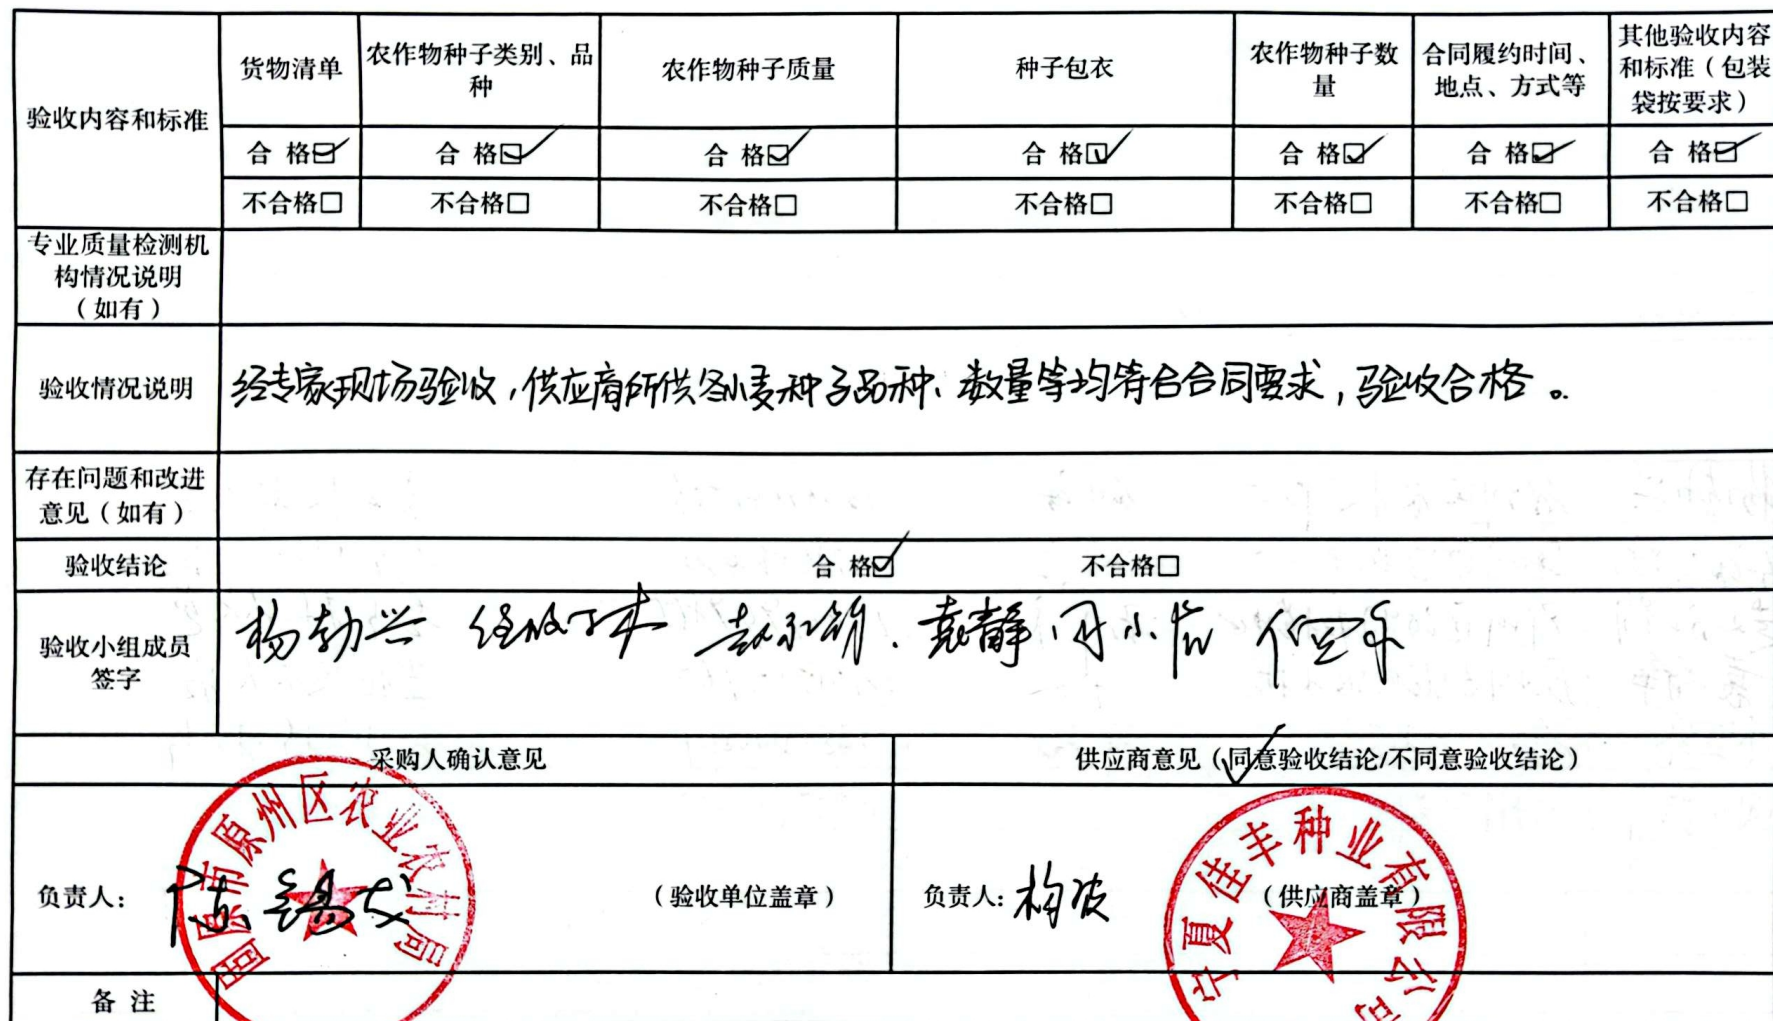 验收内容和标准
货物清单
农作物种子类别、品
种
农作物种子质量
种子包衣
农作物种子数
量
合同履约时间、
地点、方式等
其他验收内容
和标准（包装
袋按要求）
合 格☑ 合 格☑ 合 格☑ 合 格☑ 合 格☑ 合 格☑ 合 格☑
不合格□ 不合格□ 不合格□ 不合格□ 不合格□ 不合格□ 不合格□
专业质量检测机
构情况说明
（如有）
验收情况说明
经专家现场验收，供应商所供冬小麦种子品种、数量等均符合合同要求，验收合格。
存在问题和改进
意见（如有）
验收结论
合 格☑ 不合格□
验收小组成员
签字
杨勃兴 袁静
采购人确认意见
供应商意见（同意验收结论/不同意验收结论）
负责人：
（验收单位盖章）
固原市原州区农业农村局
负责人：
（供应商盖章）
宁夏佳丰种业有限公司
备 注